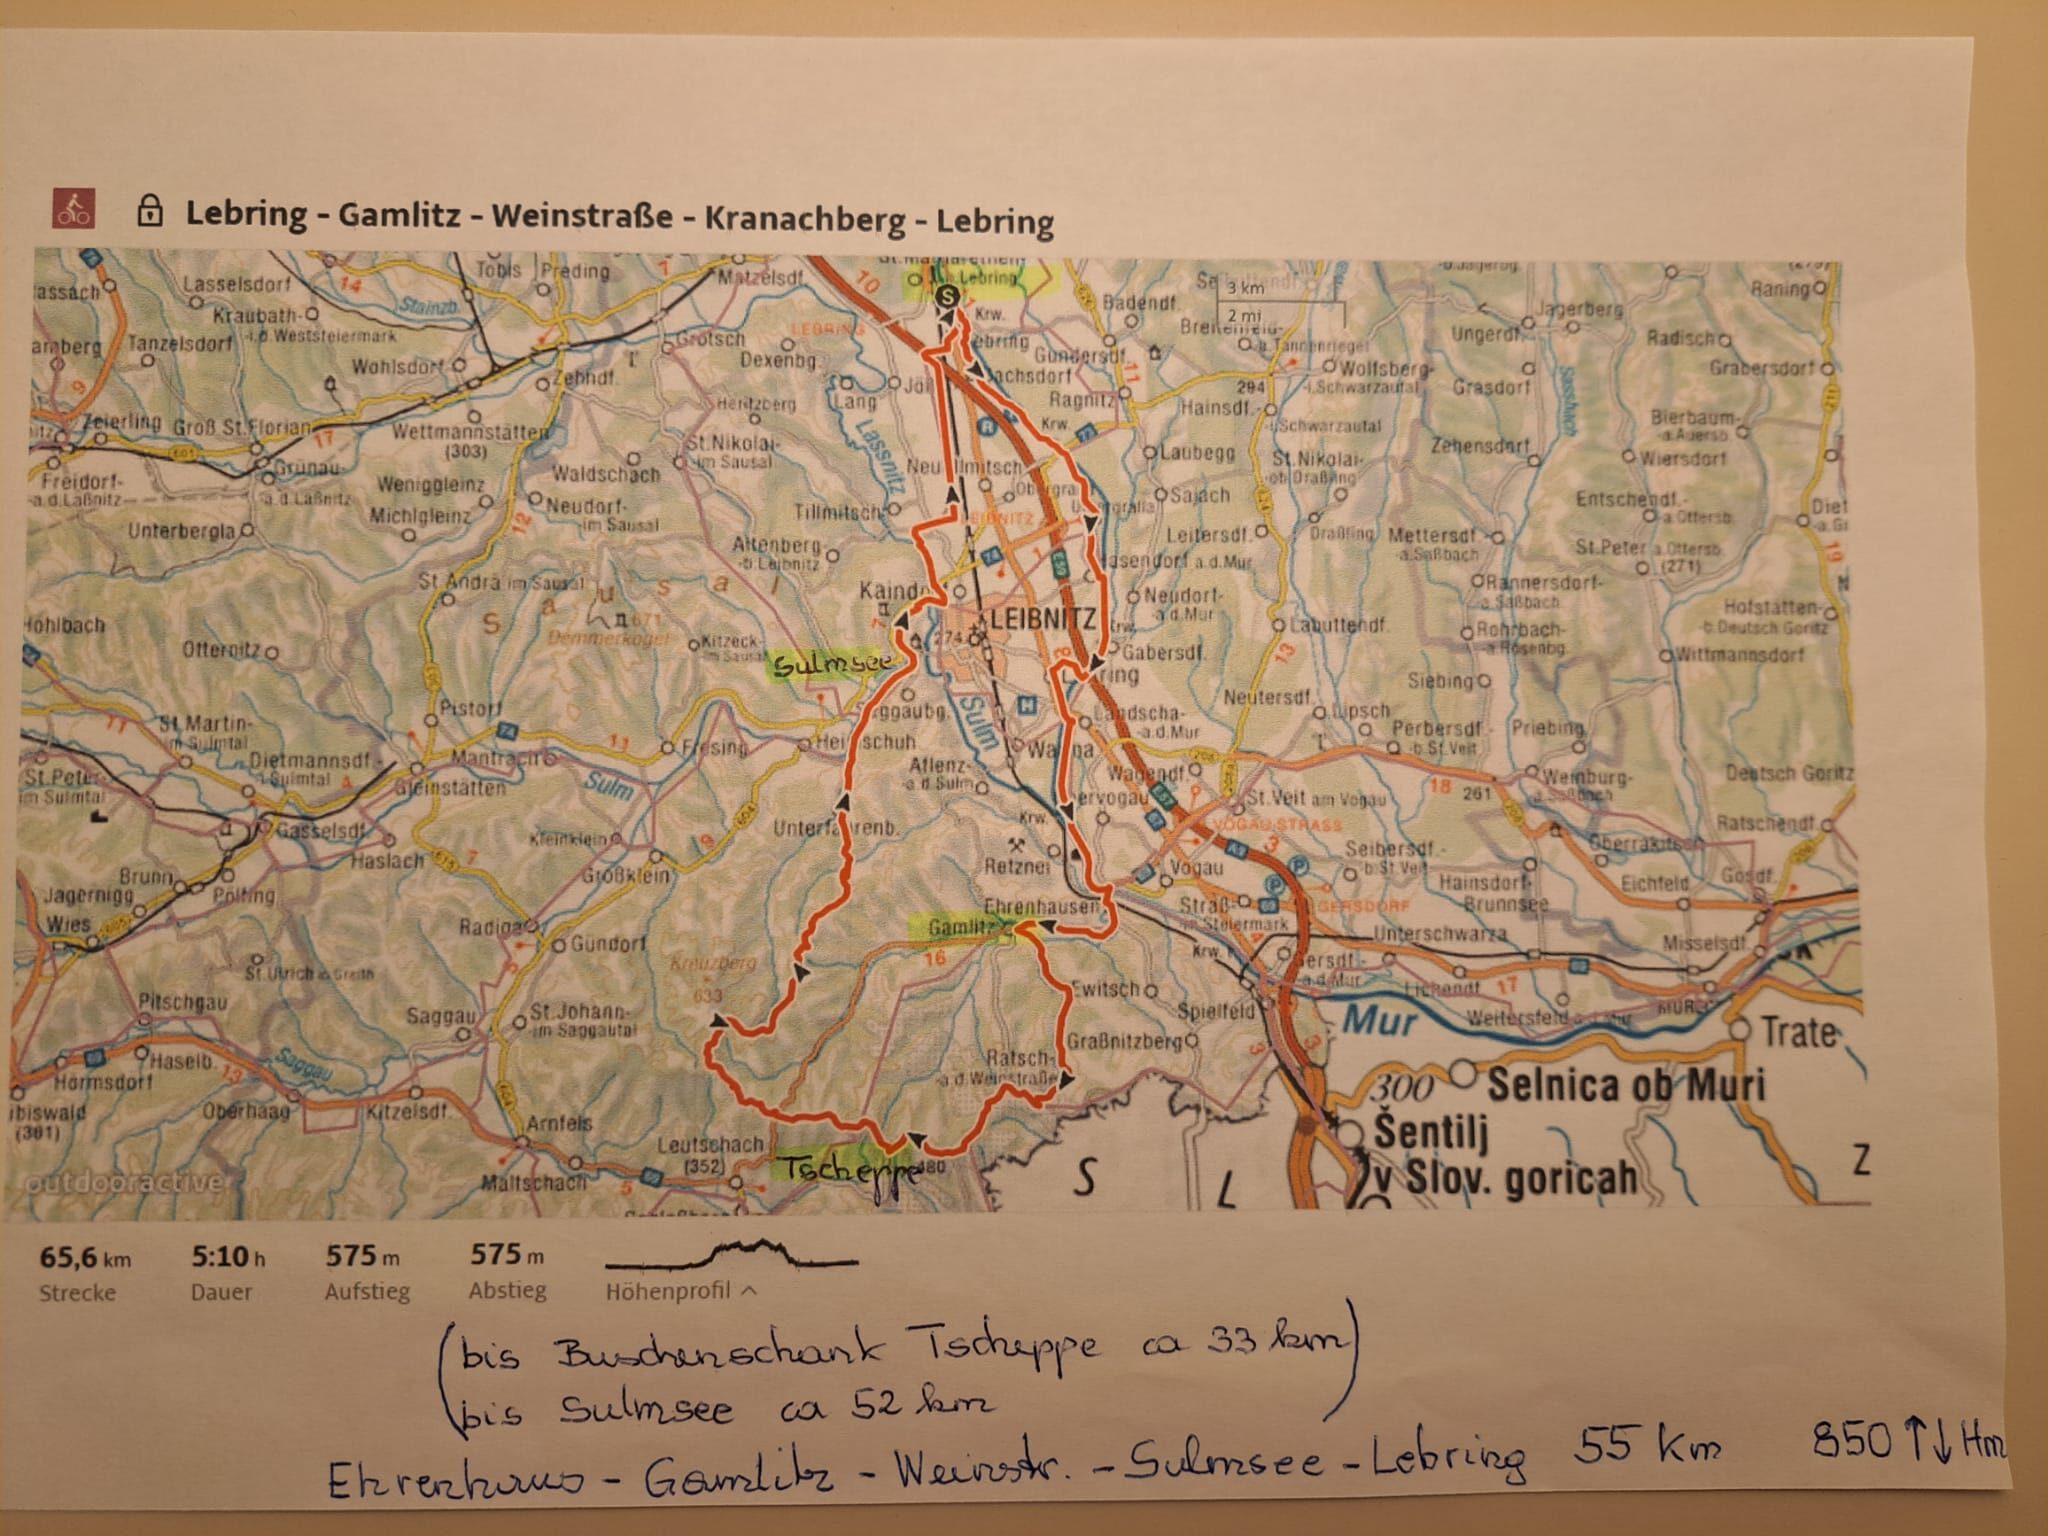 Lebring - Gamlitz - Weinstraße - Kranachberg - Lebring
Lasselsdorf
Tobls
Preding
Matzelsdf.
Lebring
3 km
2 mi
Badendf.
Jagerberg
Raning
14
Stainzb.
1
10
Kraubath-
-i.d.Weststeiermark
LEBRING
Krw.
Ungerdf.
Radisch
Tanzelsdorf
Grötsch
Dexenbg.
Gundersdf.
Wolfsberg-
-i.Schwarzautal
Grabersdorf
Wohlsdorf
9
Zehndf.
Lang
achsdorf
Ragnitz
11
294
Grasdorf
Sassbach
Zeierling
Groß St.Florian
17
Wettmannstätten
(303)
Hainsdf.-
-i.Schwarzautal
Bierbaum-
Grünau-
-a.d.Laßnitz
Freidorf-
-a.d.Laßnitz
Waldschach
St.Nikolai-
-im Sausal
Lassnitz
Krw.
Laubegg
St.Nikolai-
-ob.Draßling
Zehensdorf
Wiersdorf
Weniggleinz
Neudorf-
-im Sausal
Michlgleinz
12
Tillmitsch
Sajach
Entschendf.-
-a.Ottersb.
Unterbergla
Altenberg
-b.Leibnitz
LEIBNITZ
Leitersdf.
Draßling
Mettersdf.
-a.Saßbach
St.Peter a.Ottersb.
(271)
19
St.Andrä im Sausal
S a u s a l
Kaind
asendorf a.d.Mur
Neudorf-
-a.d.Mur
Rannersdorf-
-a.Saßbach
Hofstätten-
-b.Deutsch Goritz
Höhlbach
Otternitz
671
Demmerkogel
Kitzeck-
-im Sausal
Sulmsee
274
LEIBNITZ
Gabersdf.
Labuttendf.
13
Rohrbach-
-a.Rosenbg.
Wittmannsdorf
Pistorf
Siebing
Neutersdf.
Lipsch
Perbersdf.
-b.St.Veit
Priebing
St.Martin-
-im Sulmtal
Landscha-
-a.d.Mur
Sulm
Dietmannsdf.-
-i.Sulmtal
Mantrach
11
Fresing
Aflenz-
-a.d.Sulm
Wagendf.
St.Peter-
im Sulmtal
4
Gleinstätten
Sulm
St.Veit am Vogau
18
261
Weinburg-
-a.Saßbach
Deutsch Goritz
Gasselsdf.
Haslach
Kleinklein
Krw.
VOGAU-STRASS
3
Ratschendf.
7
Großklein
Retznei
Vogau
Seibersdf.-
-b.St.Veit
Brunn
Pölfing
Jagernigg
Wies
Hainsdorf-
Brunnsee
Eichfeld
Gosdf.
Ehrenhausen
Gamlitz
Straß-
-i.Steiermark
GERSDORF
Radiga
Gündorf
Kreuzberg
633
16
Krw.
Unterschwarza
Misselsdf.
Gersdf.-
-a.d.Mur
Lichendf.
17
Pitschgau
Saggau
St.Johann-
-im Saggautal
Ewitsch
Spielfeld
Mur
Graßnitzberg
Trate
Haselb.
Hörmsdorf
13
Saggau
Ratsch-
-a.d.Weinstraße
300
Selnica ob Muri
ibiswald
(361)
Oberhaag
Kitzelsdf.
Arnfels
Leutschach
(352)
Tscheppe
480
Šentilj
v Slov. goricah
S
L
Z
outdooractive
Maltschach
5
65,6 km
5:10 h
575 m
575 m
Strecke
Dauer
Aufstieg
Abstieg
Höhenprofil
(bis Buschenschank Tscheppe ca 33 km)
(bis Sulmsee ca 52 km
Ehrenhaus - Gamlitz - Weinstr. - Sulmsee - Lebring 55 km 850 ↑↓ Hm